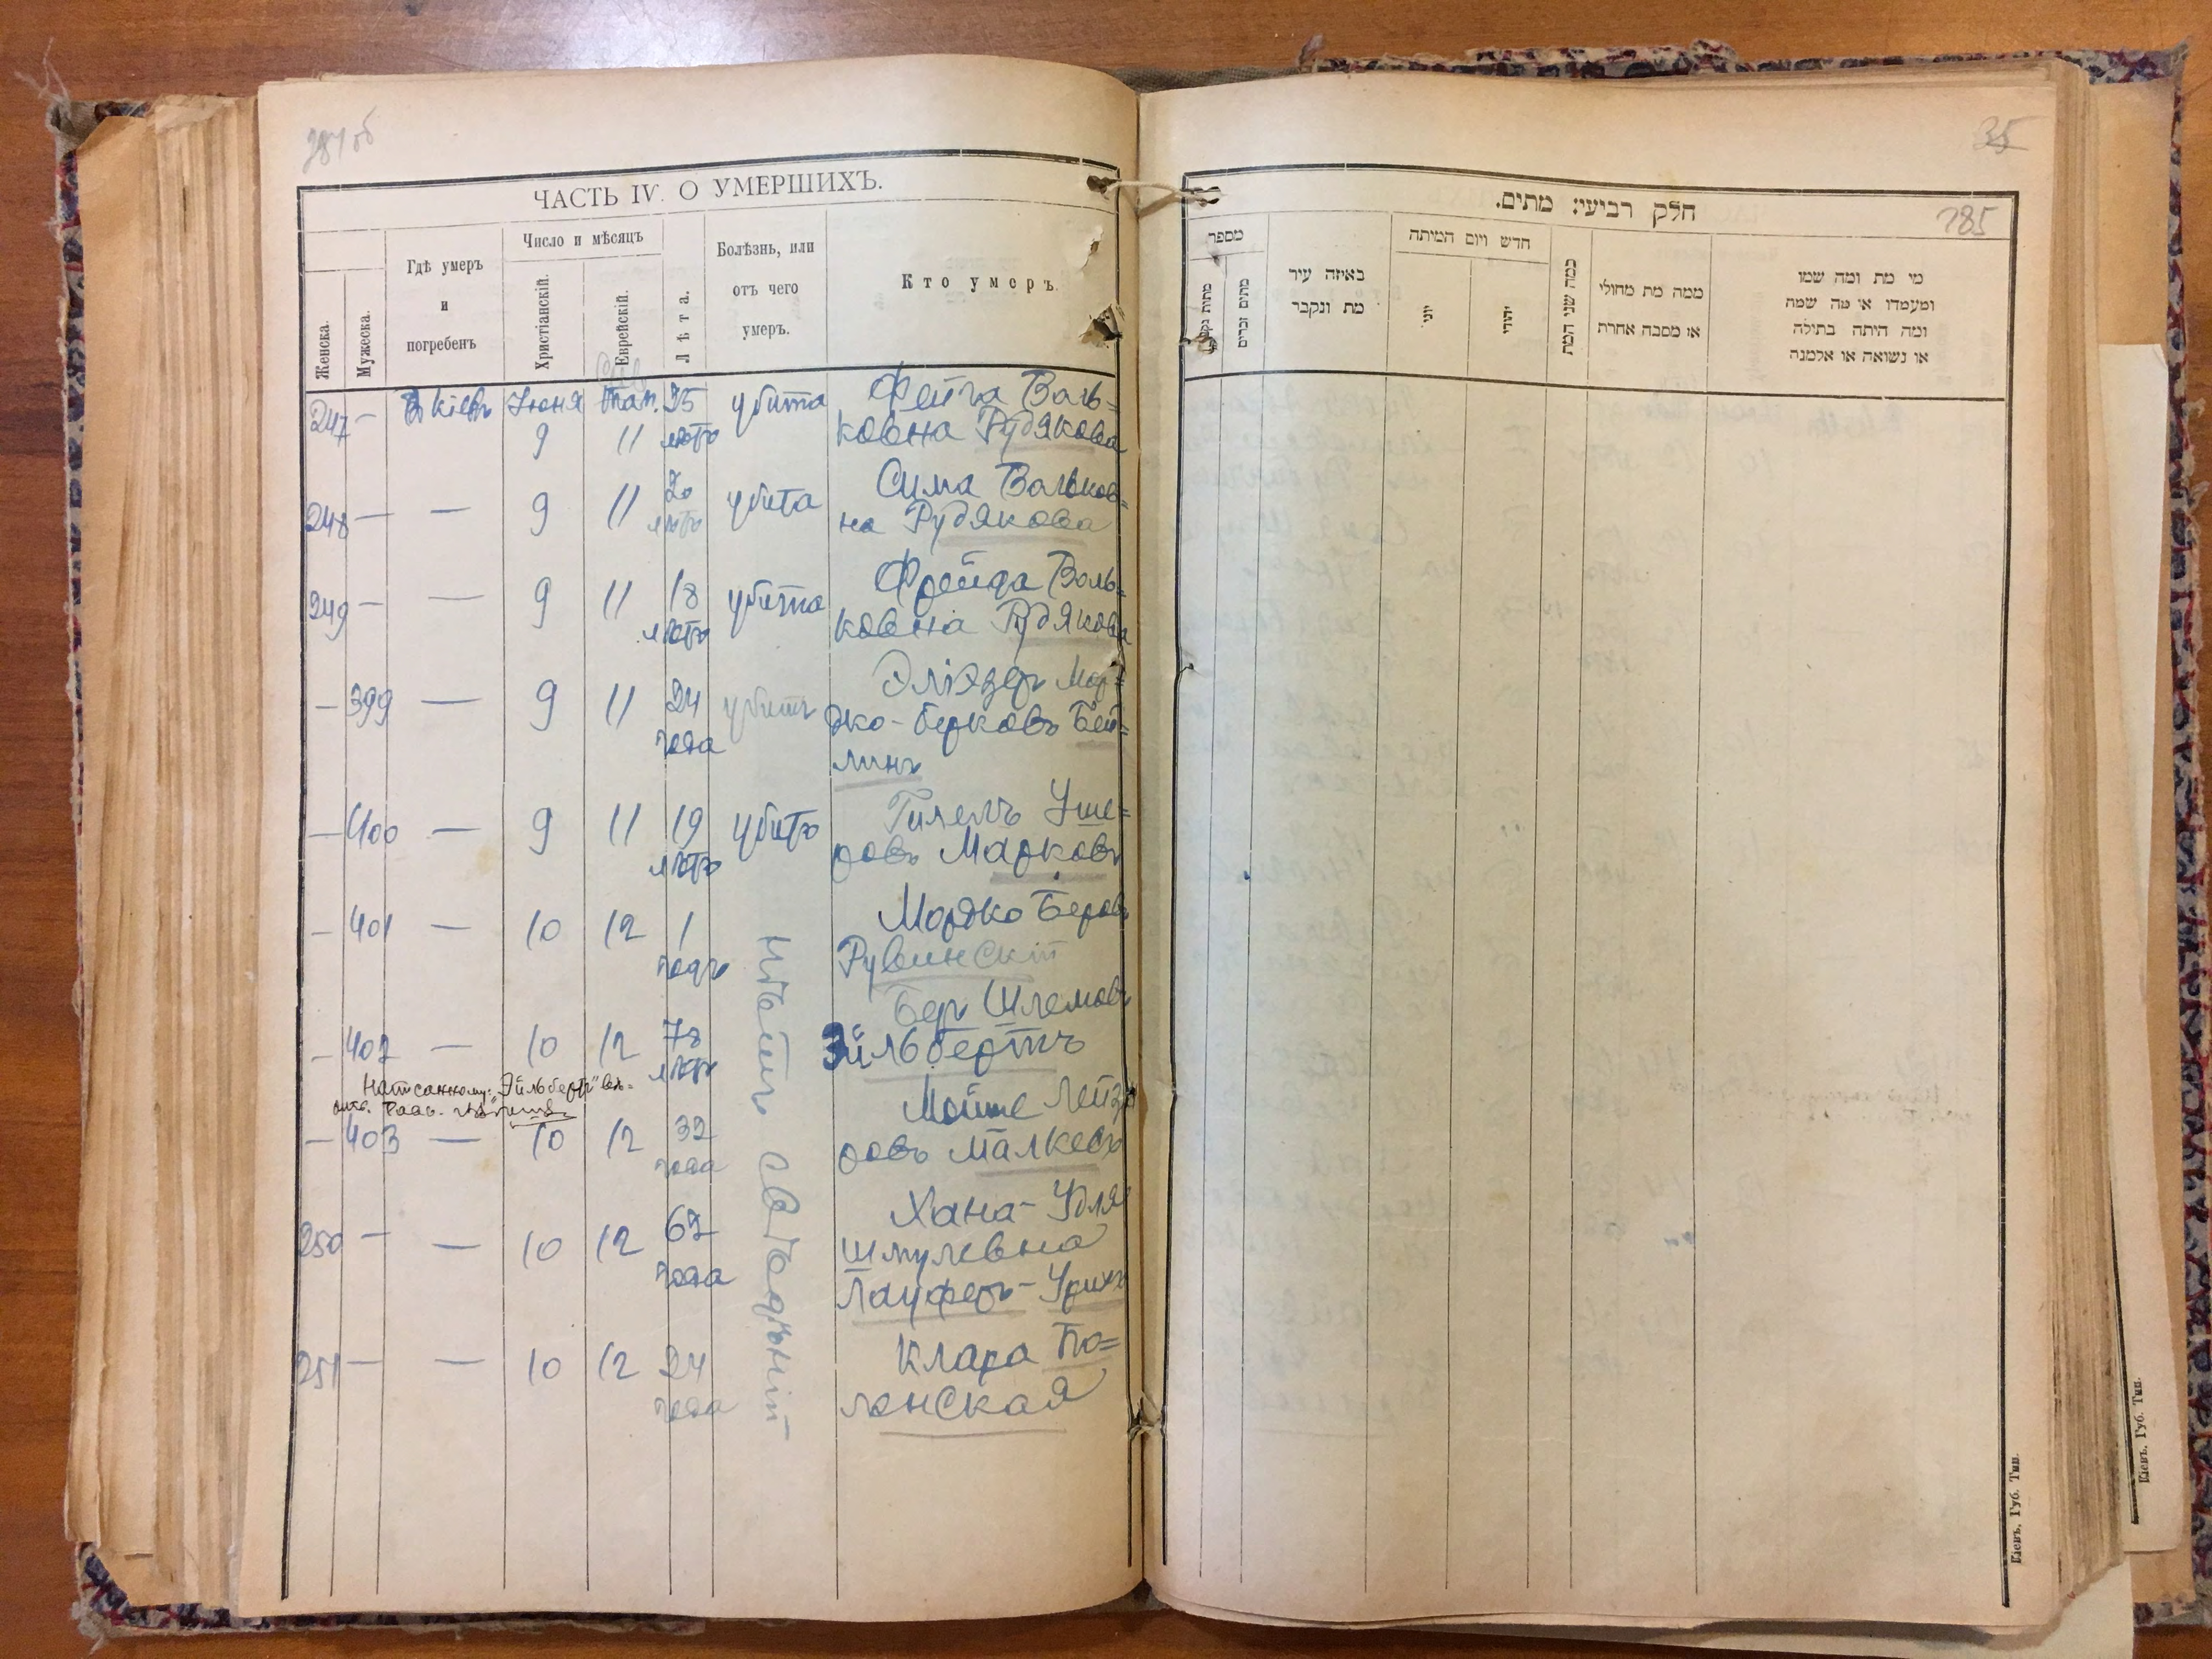 ЧАСТЬ IV. О УМЕРШИХЪ.
Женска.
Мужеска.
Гдѣ умеръ
и
погребенъ
Число и мѣсяцъ
Христіанскій.
Еврейскій.
Лѣта.
Болѣзнь, или
отъ чего
умеръ.
Кто умеръ.
247 — В Кіевѣ Іюня Там. 25 убита Фейга Воль=
9 11 лѣтъ ковна Рудякова
248 — — 9 11 20 убита Сима Вольков=
лѣтъ на Рудякова
249 — — 9 11 18 убита Фрейда Воль=
лѣтъ ковна Рудякова
— 399 — 9 11 24 убитъ Эліэзеръ Мор=
года дко-Берковъ Бей=
линъ
— 400 — 9 11 19 убитъ Гилель Уше=
лѣтъ ровъ Марковъ
— 401 — 10 12 1 Мордко Беровъ
годъ Рувинскій
Бер Шлемовъ
— 402 — 10 12 78 Эйльбертъ
лѣтъ
Написанному: "Эйльбертъ" вѣ=
Мойше Лейзе
— 403 — 10 12 32 ровъ Малкевъ
года
Хана-Удля
250 — — 10 12 62 Шмулевна
года Лауферъ-Урихъ
251 — — 10 12 24 Клара По=
года лонская
חלק רביעי׃ מתים.
185
35
מספר
מתים זכרים
באיזה עיר
מת ונקבר
חדש ויום המיתה
יוני
יהודי
כמה שני המת
ממה מת מחולי
או מסבה אחרת
מי מת ומה שמו
ומעמדו או מה שמה
ומה היתה בתולה
או נשואה או אלמנה
Кіевъ, Губ. Тип.
Кіевъ, Губ. Тип.